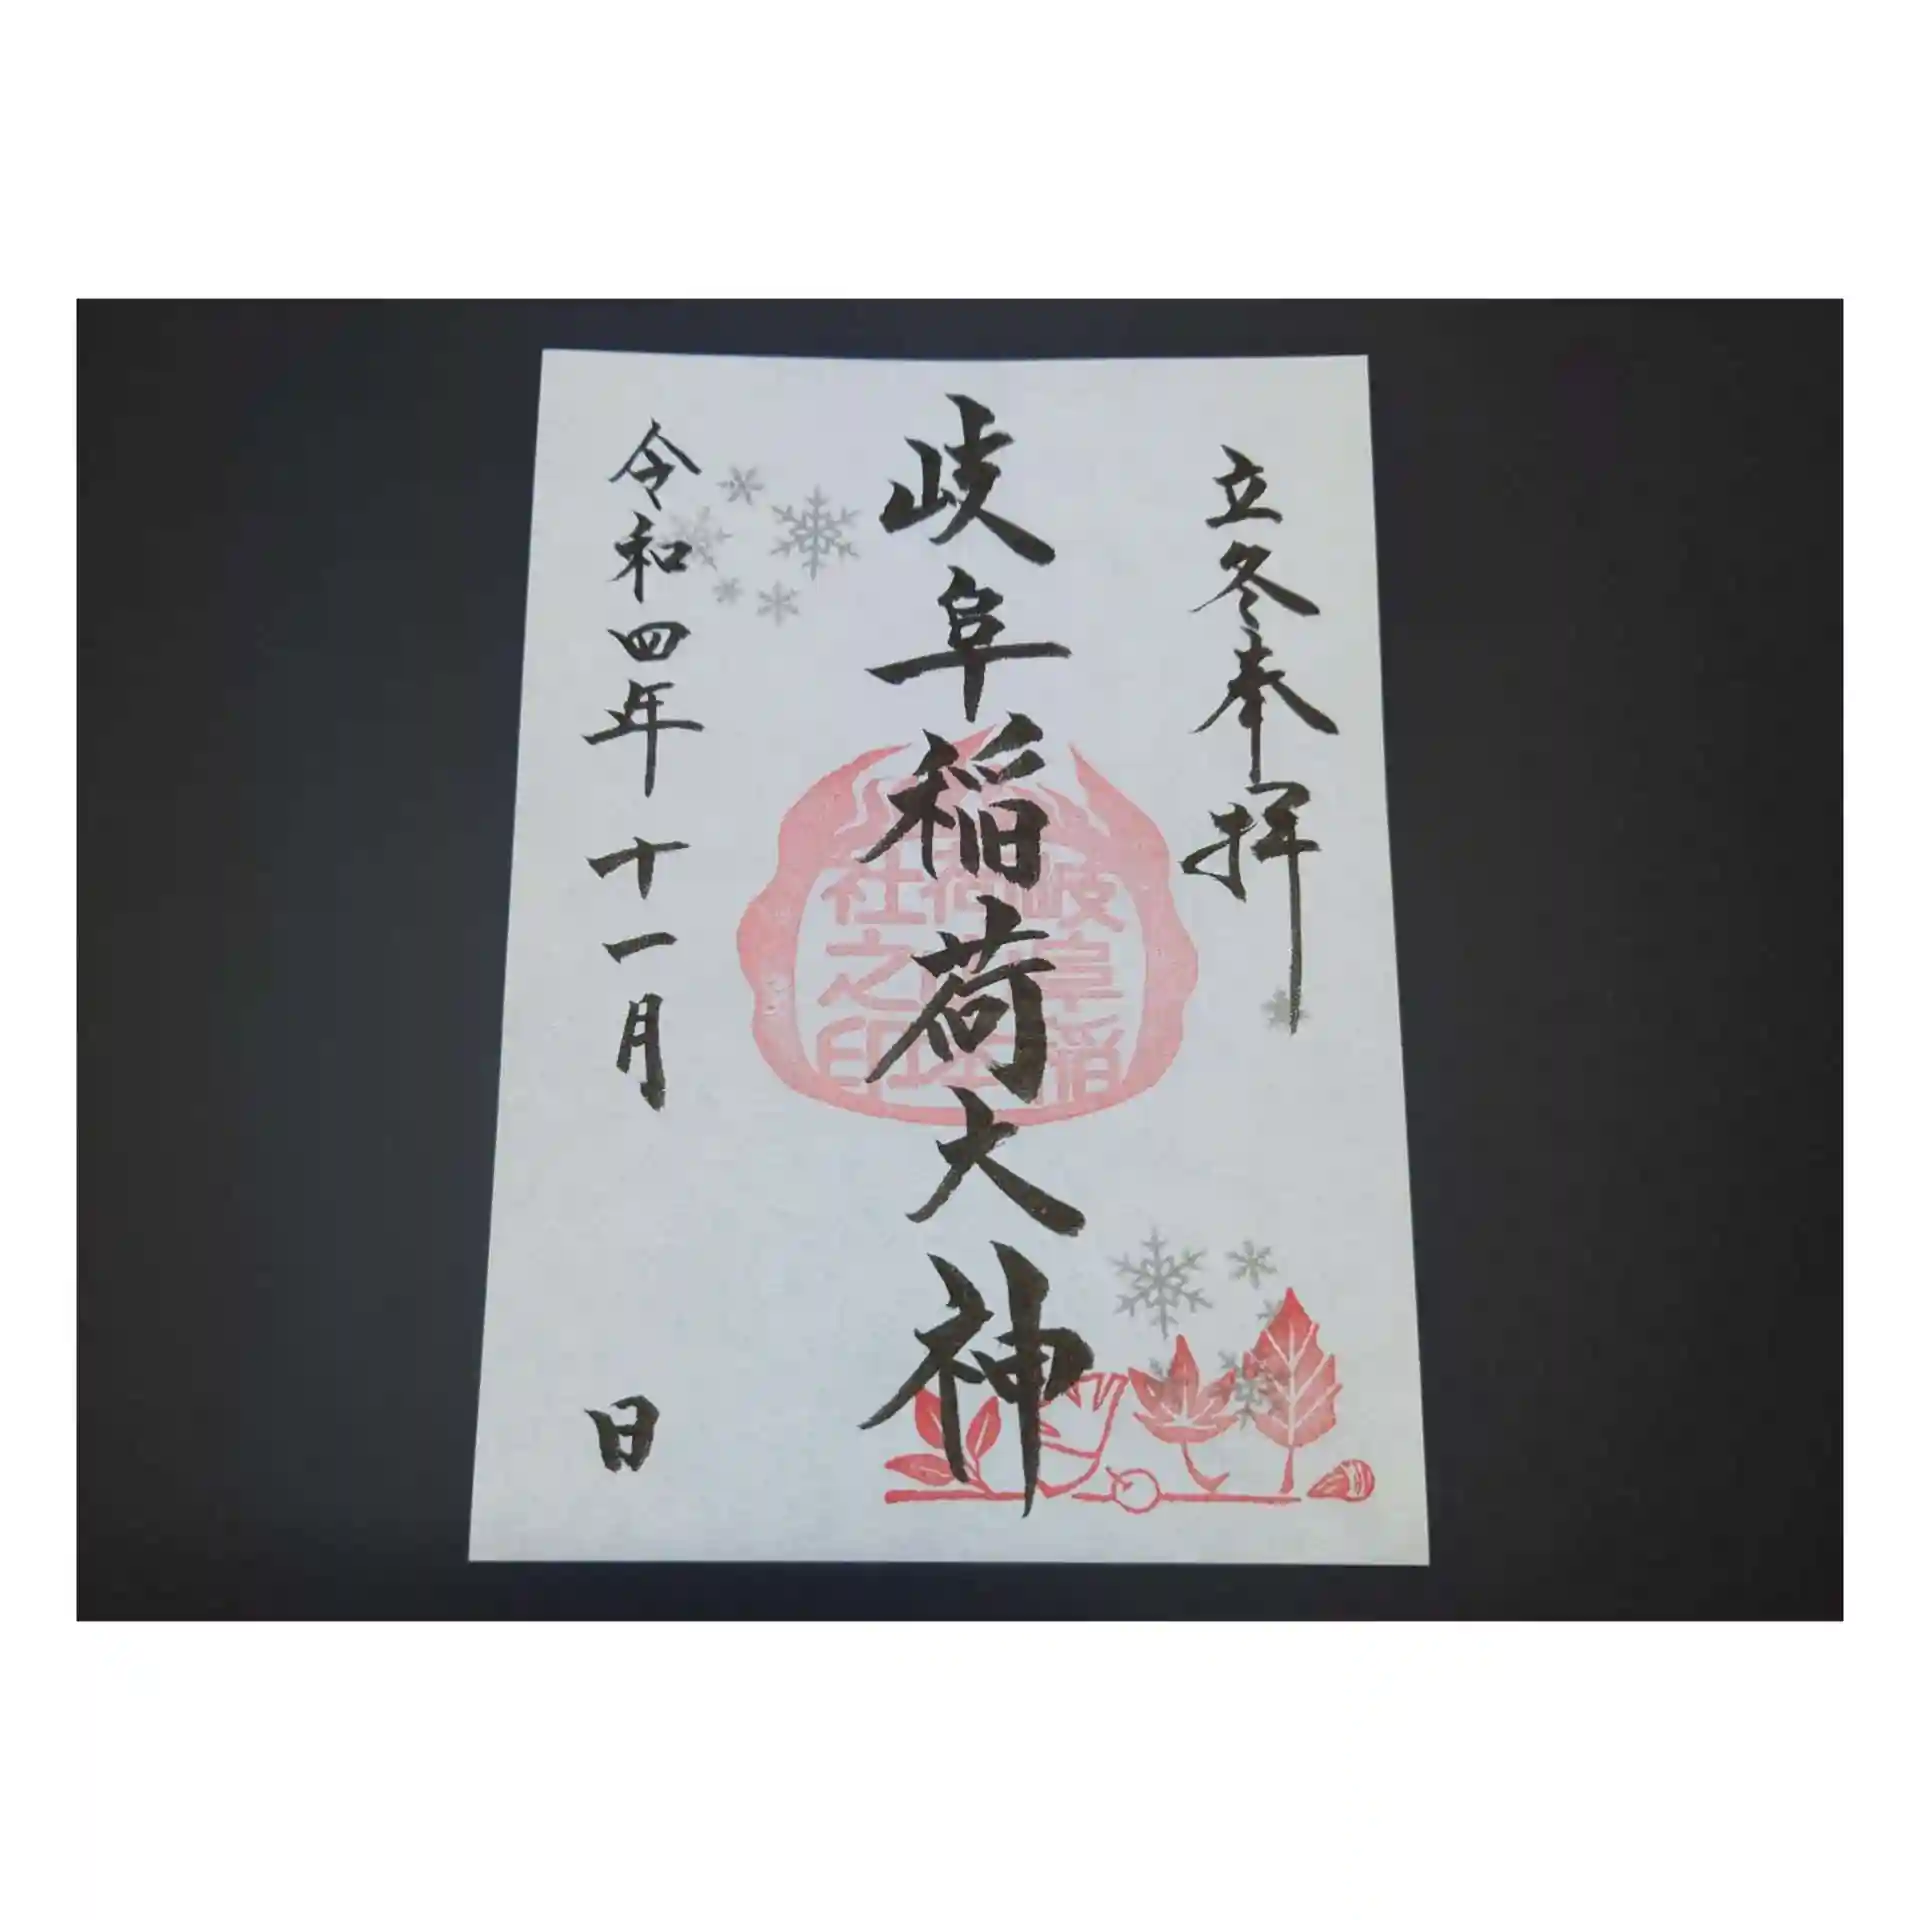 立冬奉拝
岐阜稲荷大神
令和四年十一月 日
岐阜稲
社之印